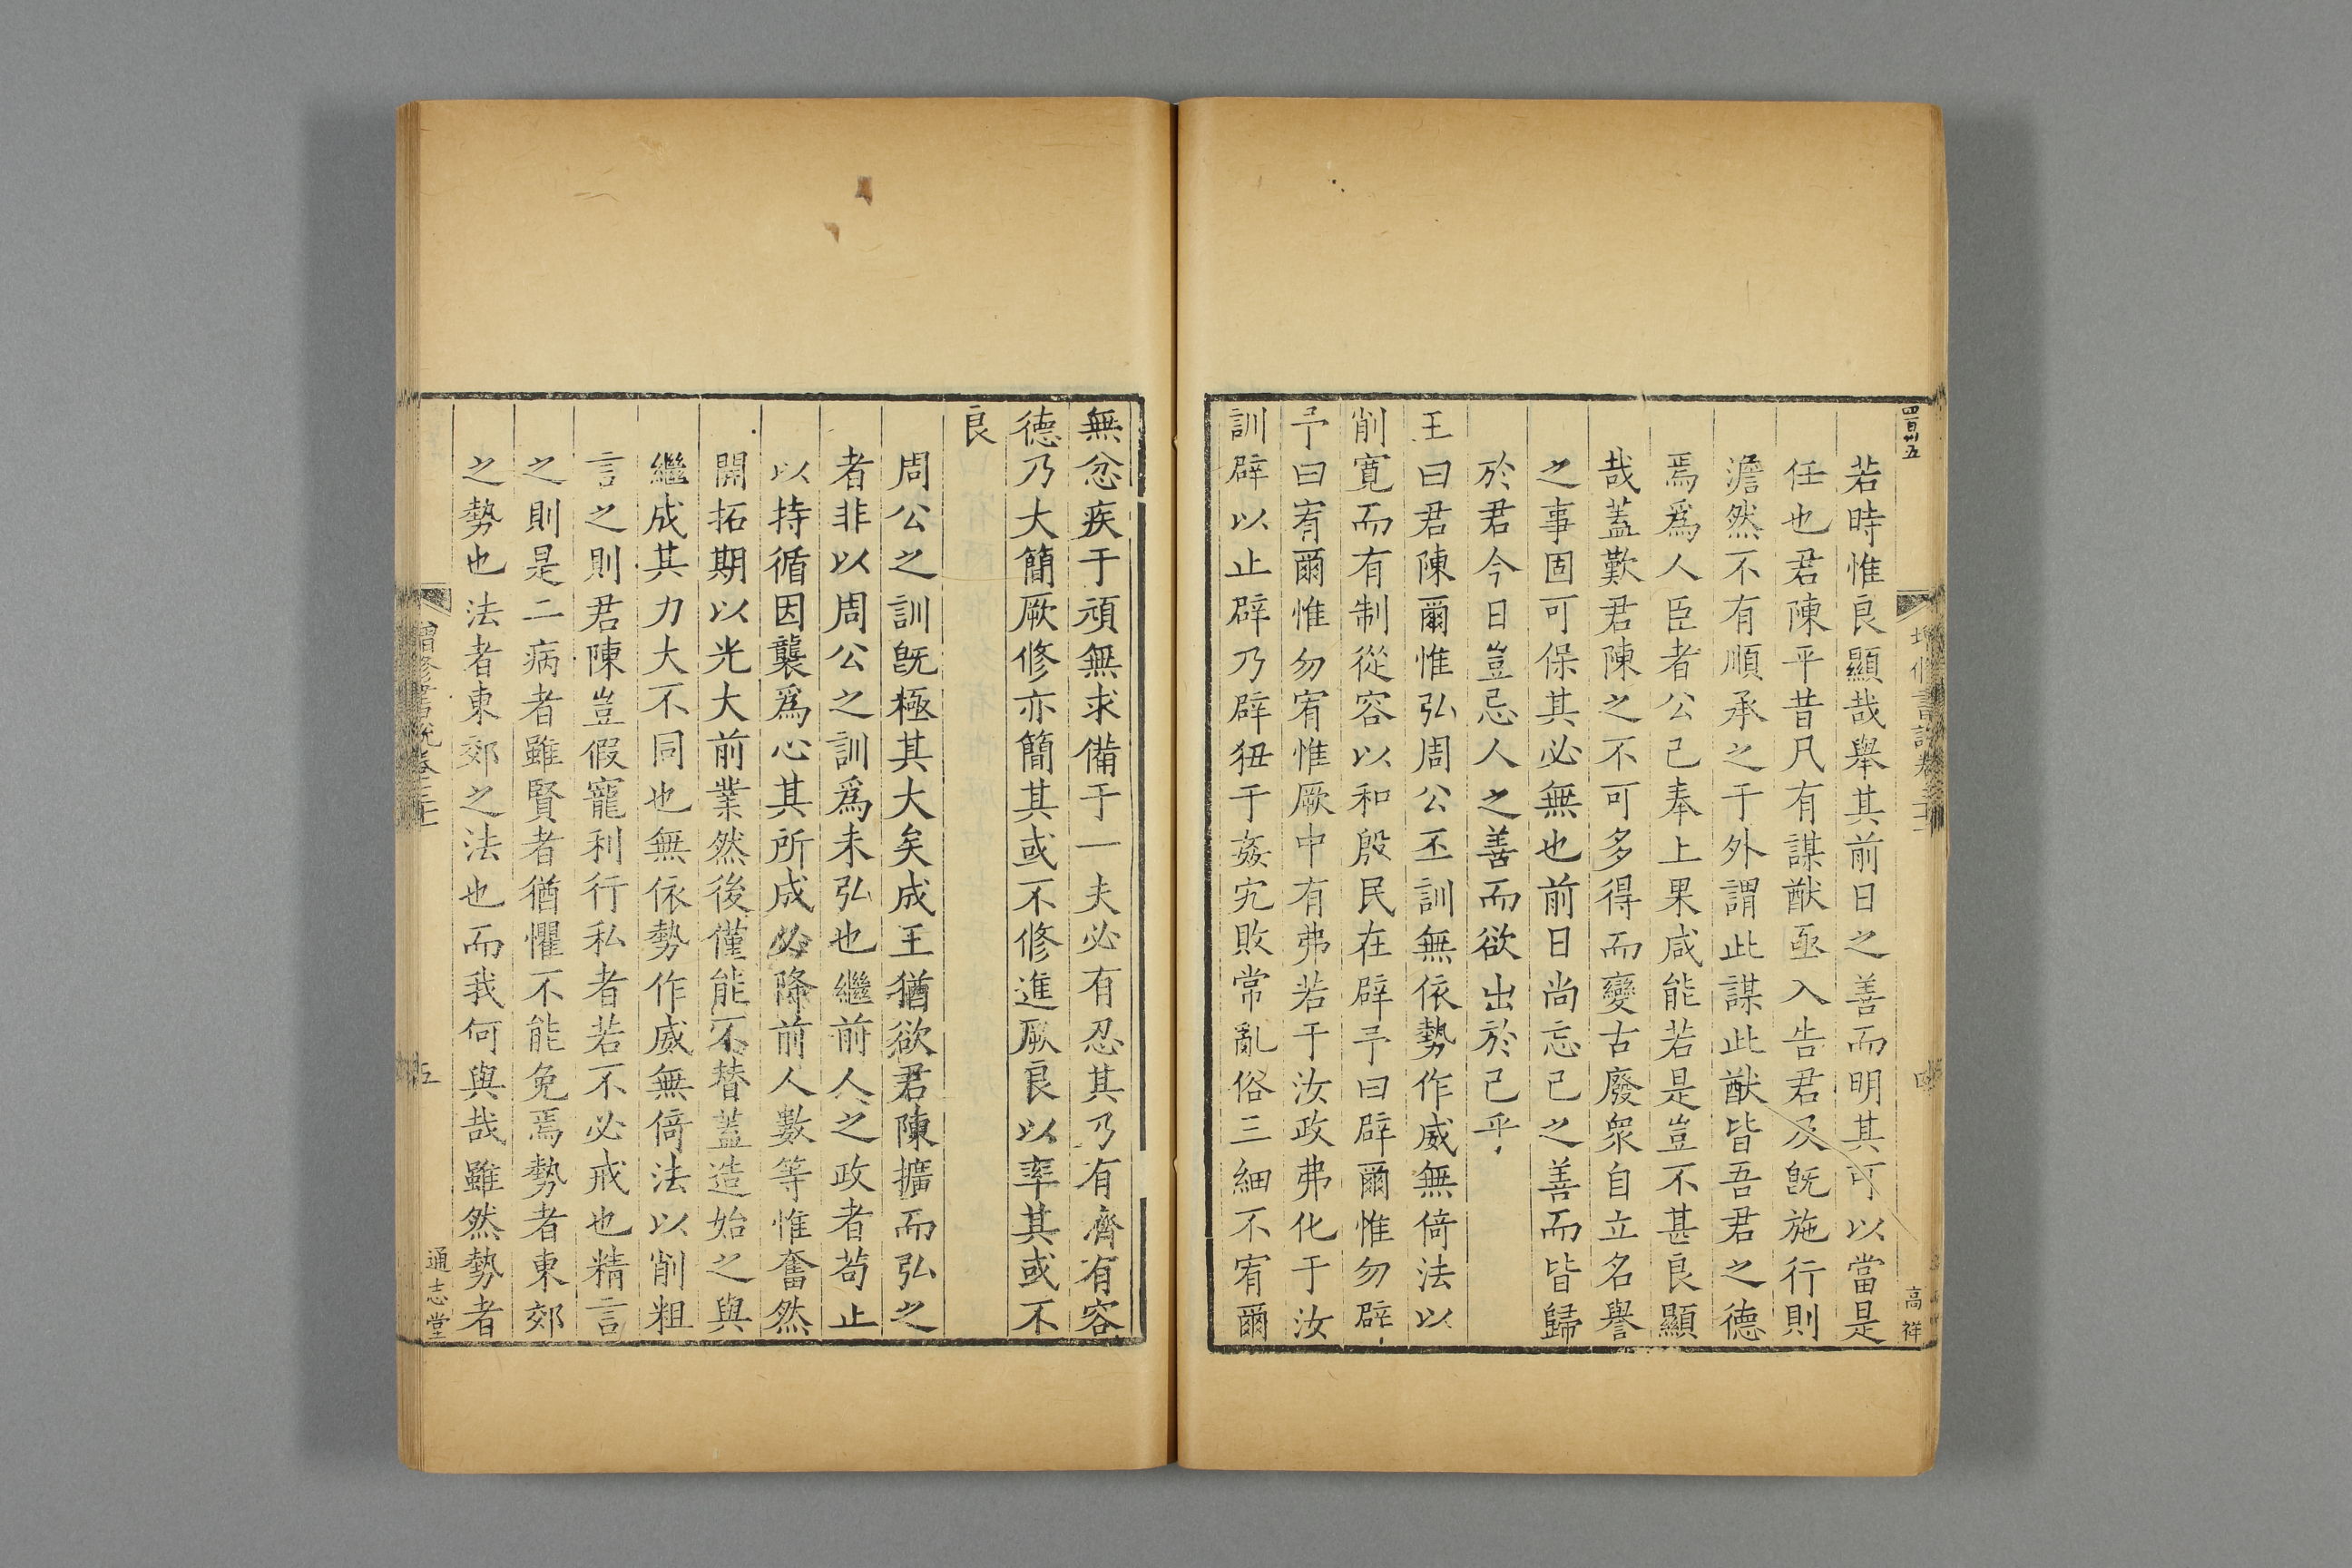 四百卅五
高祥
若時惟良顯哉舉其前日之善而明其可以當是
任也君陳平昔凡有謀猷亟入告君及旣施行則
澹然不有順承之于外謂此謀此猷皆吾君之德
焉爲人臣者公己奉上果咸能若是豈不甚良顯
哉蓋歎君陳之不可多得而變古廢衆自立名譽
之事固可保其必無也前日尚忘己之善而皆歸
於君今日豈忌人之善而欲出於己乎
王曰君陳爾惟弘周公丕訓無依勢作威無倚法以
削寛而有制從容以和殷民在辟予曰辟爾惟勿辟
予曰宥爾惟勿宥惟厥中有弗若于汝政弗化于汝
訓辟以止辟乃辟狃于姦宄敗常亂俗三細不宥爾
無忿疾于頑無求備于一夫必有忍其乃有濟有容
德乃大簡厥修亦簡其或不修進厥良以率其或不
良
周公之訓旣極其大矣成王猶欲君陳擴而弘之
者非以周公之訓爲未弘也繼前人之政者苟止
以持循因襲爲心其所成必降前人數等惟奮然
開拓期以光大前業然後僅能不替蓋造始之與
繼成其力大不同也無依勢作威無倚法以削粗
言之則君陳豈假寵利行私者若不必戒也精言
之則是二病者雖賢者猶懼不能免焉勢者東郊
之勢也法者東郊之法也而我何與哉雖然勢者
增修書說卷三十
五
通志堂